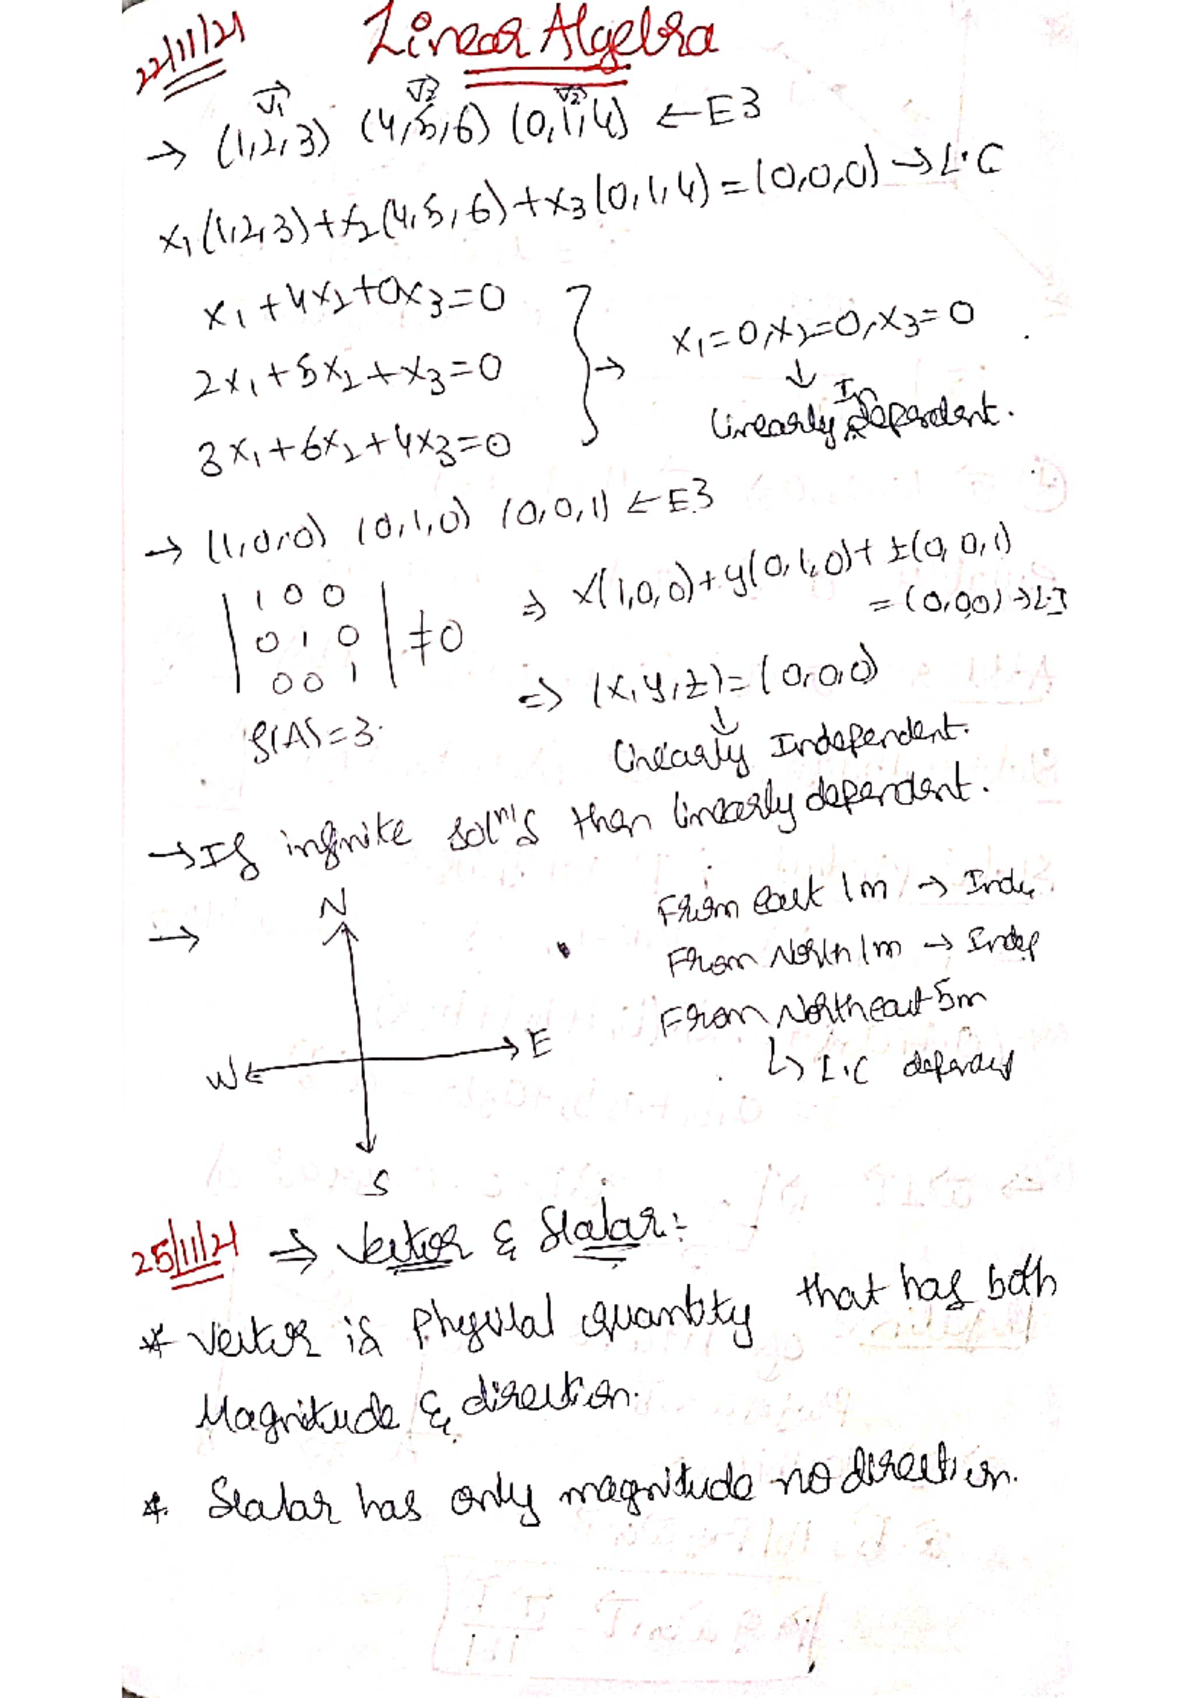 22/11/21
Linear Algebra
V1 V2 V2
→ (1,2,3) (4,5,6) (0,1,4) ← E3
x1(1,2,3)+x2(4,5,6)+x3(0,1,4)=(0,0,0) → L.C
x1+4x2+0x3=0
2x1+5x2+x3=0
3x1+6x2+4x3=0
→ x1=0,x2=0,x3=0
↓
Linearly InDependent.
→ (1,0,0) (0,1,0) (0,0,1) ← E3
| 1 0 0 |
| 0 1 0 | ≠0
| 0 0 1 |
ρ(A)=3.
⇒ x(1,0,0)+y(0,1,0)+z(0,0,1)
=(0,0,0)→L.I
⇒ (x,y,z)=(0,0,0)
↓
Linearly Independent.
→ If infinite soln's then linearly dependent.
→
N
W
E
S
From east 1m → Inde
From North 1m → Indep
From Northeast 5m
↳ L.C depend
25/11/21 ⇒ Vector & Scalar:
* Vector is Physical quantity that has both
Magnitude & direction.
* Scalar has only magnitude no direction.